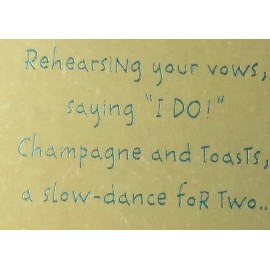 Rehearsing your vows,
saying "I DO!"
Champagne and Toasts,
a slow-dance for Two..